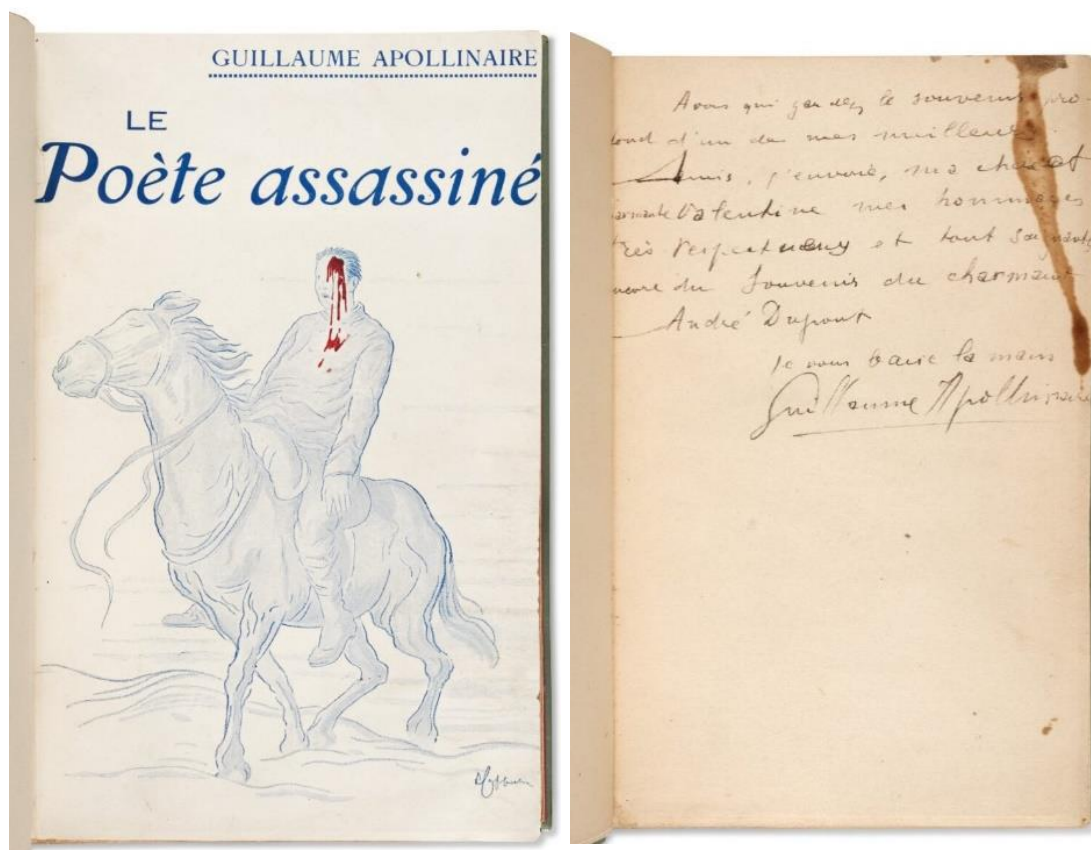 GUILLAUME APOLLINAIRE
LE
Poète assassiné
A vous qui gardez le souvenir pro-
fond d'un de mes meilleurs
Amis, j'envoie, ma chère et
charmante Valentine mes hommages
très respectueux et tout
encore du souvenir du charmant
André Dupont
Je vous baise la main
Guillaume Apollinaire